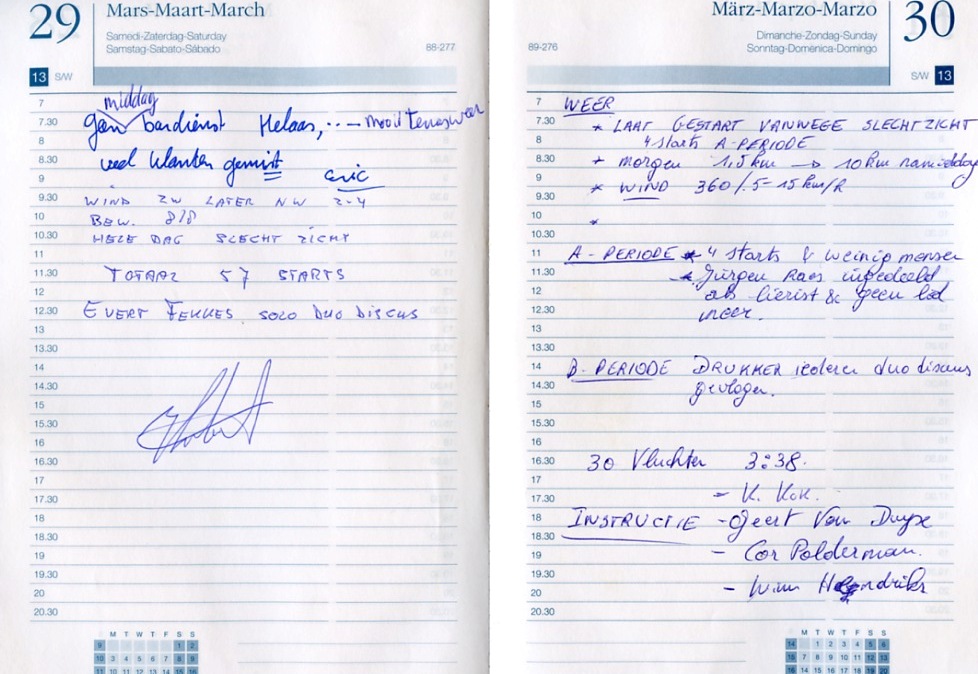 29
Mars-Maart-March
Samedi-Zaterdag-Saturday
Samstag-Sabato-Sábado
88-277
13 S/W
7
middag
7.30 geen bardienst Helaas, ..— mooi
8
8.30 veel klanten gemist
Eric
9
9.30 WIND ZW LATER NW 2-4
10 BEW. 8/8
10.30 HELE DAG SLECHT ZICHT
11
11.30 TOTAAL 57 STARTS
12
12.30 EVERT FEKKES SOLO DUO DISCUS
13
13.30
14
14.30
15
15.30
16
16.30
17
17.30
18
18.30
19
19.30
20
20.30
M T W T F S S
9 1 2
10 3 4 5 6 7 8 9
11 10 11 12 13 14 15 16
März-Marzo-Marzo
30
Dimanche-Zondag-Sunday
Sonntag-Domenica-Domingo
89-276
S/W 13
7 WEER
7.30 * LAAT GESTART VANWEGE SLECHT ZICHT
8 4 starts A-PERIODE
8.30 * morgen 1,5 km → 10 km namiddag
9
9.30 * WIND 360/.5-15 km/R
10 *
10.30
11 A-PERIODE * 4 starts & weinig mensen
11.30 * Jürgen Raes ingedeeld
12 als lierist & geen lid
12.30 meer.
13
13.30
14 B. PERIODE DRUKKER iedereen duo discus
14.30 gevlogen.
15
15.30
16
16.30 30 Vluchten 3:38.
17
17.30 - K. Kok.
18 INSTRUCTIE - Geert Van Duyse
18.30
19 - Cor Polderman.
19.30
20 - Wim Hendriks
20.30
M T W T F S S
14 1 2 3 4 5 6
15 7 8 9 10 11 12 13
16 14 15 16 17 18 19 20